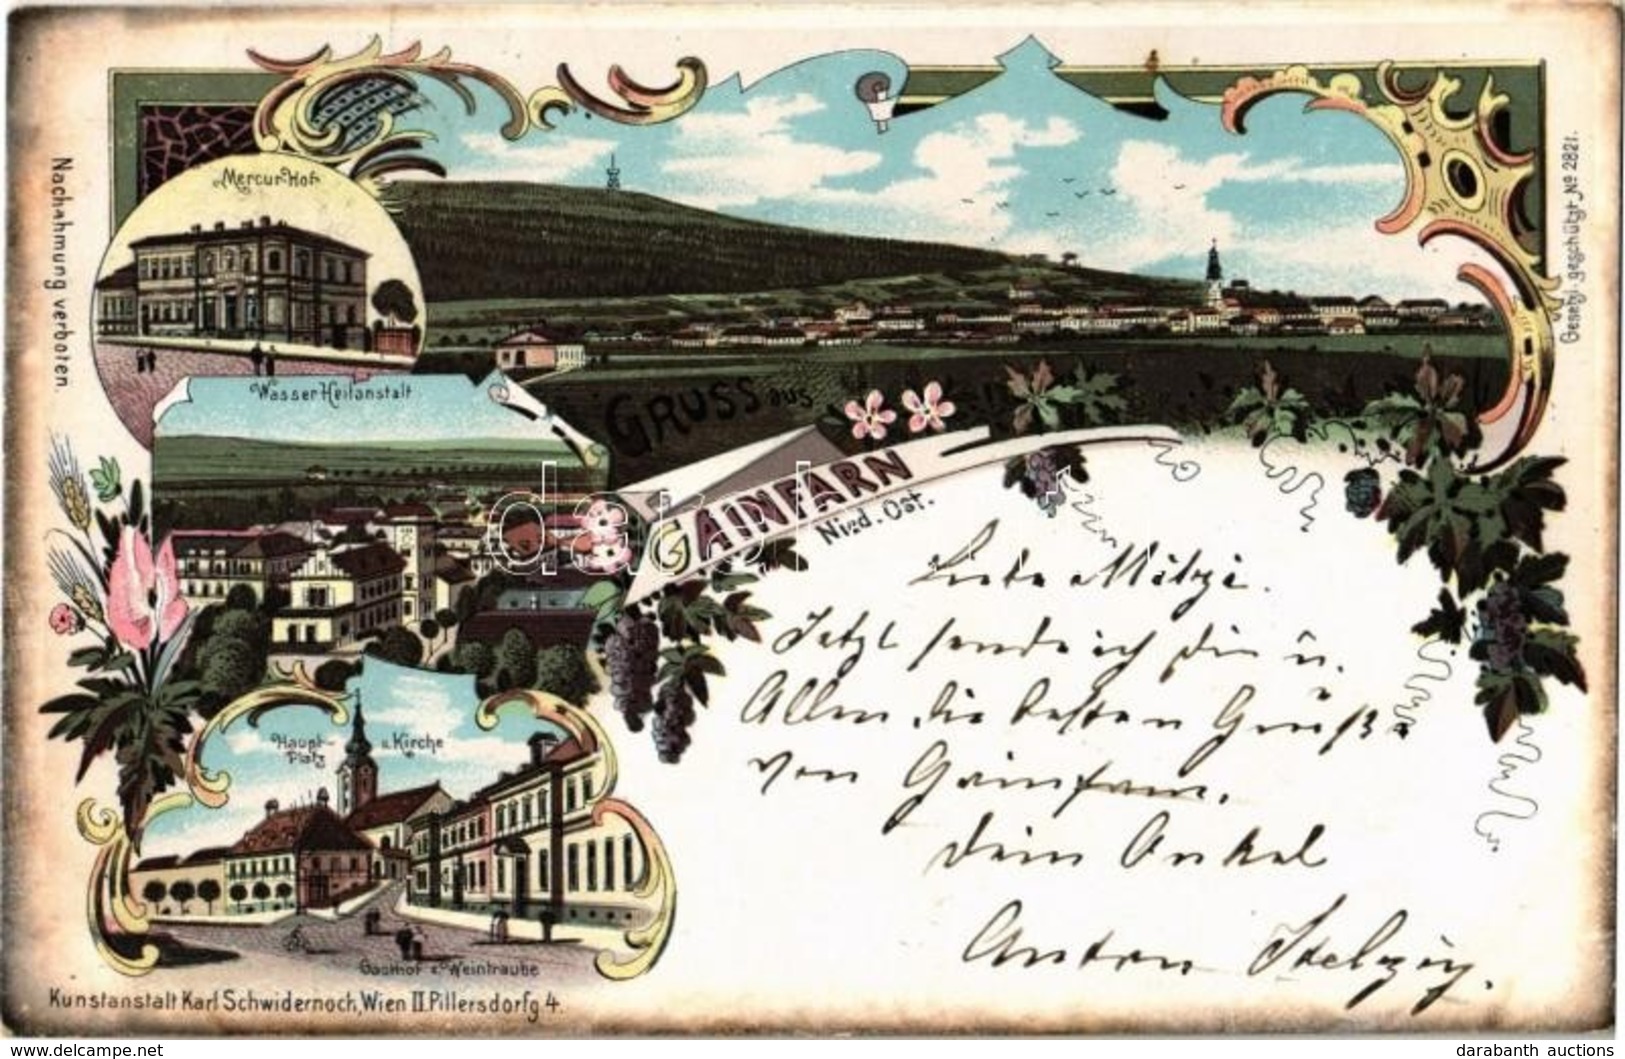 Mercur-Hof
Nachahmung verboten.
Gesetzl. geschützt No 2821.
Wasser Heilanstalt
GRUSS aus
GAINFARN
Nied. Öst.
Liebe Mitzi.
Jetzt sende ich dir u.
Allen die besten Grüße
von Gainfarn.
dein Onkel
Anton
Haupt- u. Kirche
Platz
Gasthof z. Weintraube
Kunstanstalt Karl Schwidernoch, Wien II Pillersdorfg 4.
darabanth
www.delcampe.net
darabanth auctions